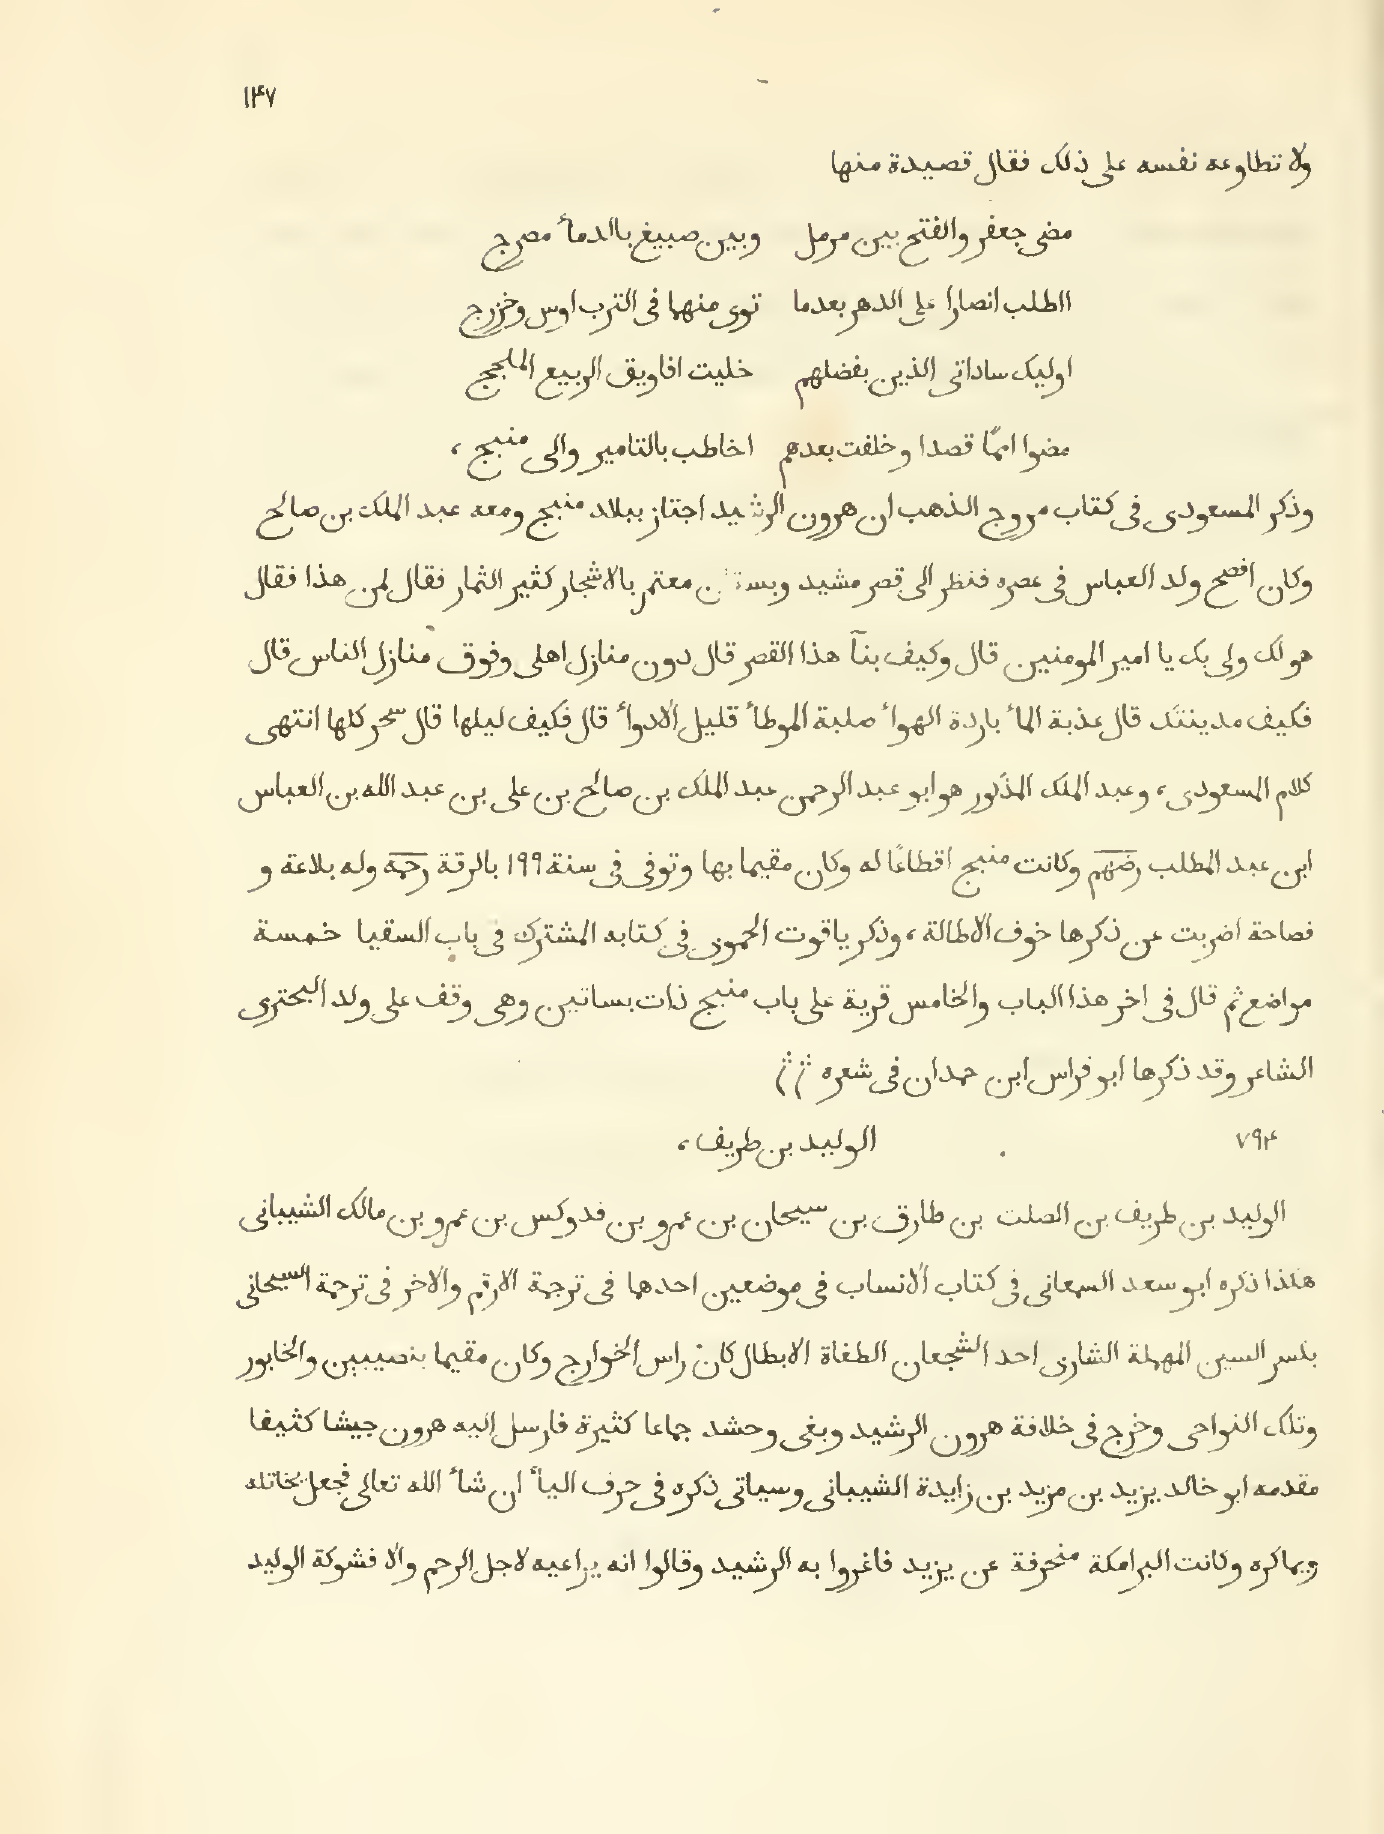 ١٤٧
ولا تطاوعه نفسه على ذلك فقال قصيدة منها
مضى جعفر والفتح بين مرمل وبين صبيغ بالدمأ مصرج
ااطلب انصارا على الدهر بعدما توى منهما فى الترب اوس وخزرج
اوليك ساداتى الذين بفضلهم خليت افاويق الربيع الملجج
مضوا امما قصدا وخلفت بعدهم اخاطب بالتامير والى منبج ،
وذكر المسعودى فى كتاب مروج الذهب ان هرون الرشيد اجتاز ببلاد منبج ومعه عبد الملك بن صالح
وكان افصح ولد العباس فى عصره فنظر الى قصر مشيد وبستان معتمر بالاشجار كثير الثمار فقال لمن هذا فقال
هو لك ولى بك يا امير المومنين قال وكيف بنآ هذا القصر قال دون منازل اهلى وفوق منازل الناس قال
فكيف مدينتك قال عذبة المأ باردة الهوأ صلبة الموطأ قليل الادوأ قال فكيف ليلها قال سحر كلها انتهى
كلام المسعودى ، وعبد الملك المذكور هو ابو عبد الرحمن عبد الملك بن صالح بن على بن عبد الله بن العباس
ابن عبد المطلب رضهم وكانت منبج اقطاعًا له وكان مقيما بها وتوفى فى سنة ١٩٩ بالرقة رحمه وله بلاغة و
فصاحة اضربت عن ذكرها خوف الاطالة ، وذكر ياقوت الحموى فى كتابه المشترك فى باب السقيا خمسة
مواضع ثم قال فى اخر هذا الباب والخامس قرية على باب منبج ذات بساتين وهى وقف على ولد البحترى
الشاعر وقد ذكرها ابو فراس ابن حمدان فى شعره
٧٩٤ الوليد بن طريف ،
الوليد بن طريف بن الصلت بن طارق بن سيحان بن عمرو بن فدوكس بن عمرو بن مالك الشيبانى
هكذا ذكره ابو سعد السمعانى فى كتاب الانساب فى موضعين احدهما فى ترجمة الارقم والاخر فى ترجمة السيحانى
بكسر السين المهملة الشارى احد الشجعان الطغاة الابطال كان راس الخوارج وكان مقيما بنصيبين والخابور
وتلك النواحى وخرج فى خلافة هرون الرشيد وبغى وحشد جماعا كثيرة فارسل اليه هرون جيشا كثيفا
مقدمه ابو خالد يزيد بن مزيد بن زايدة الشيبانى وسياتى ذكره فى حرف اليأ ان شأ الله تعالى فجعل يخاتله
ويماكره وكانت البرامكة منحرفة عن يزيد فاغروا به الرشيد وقالوا انه يراعيه لاجل الرحم والا فشوكة الوليد